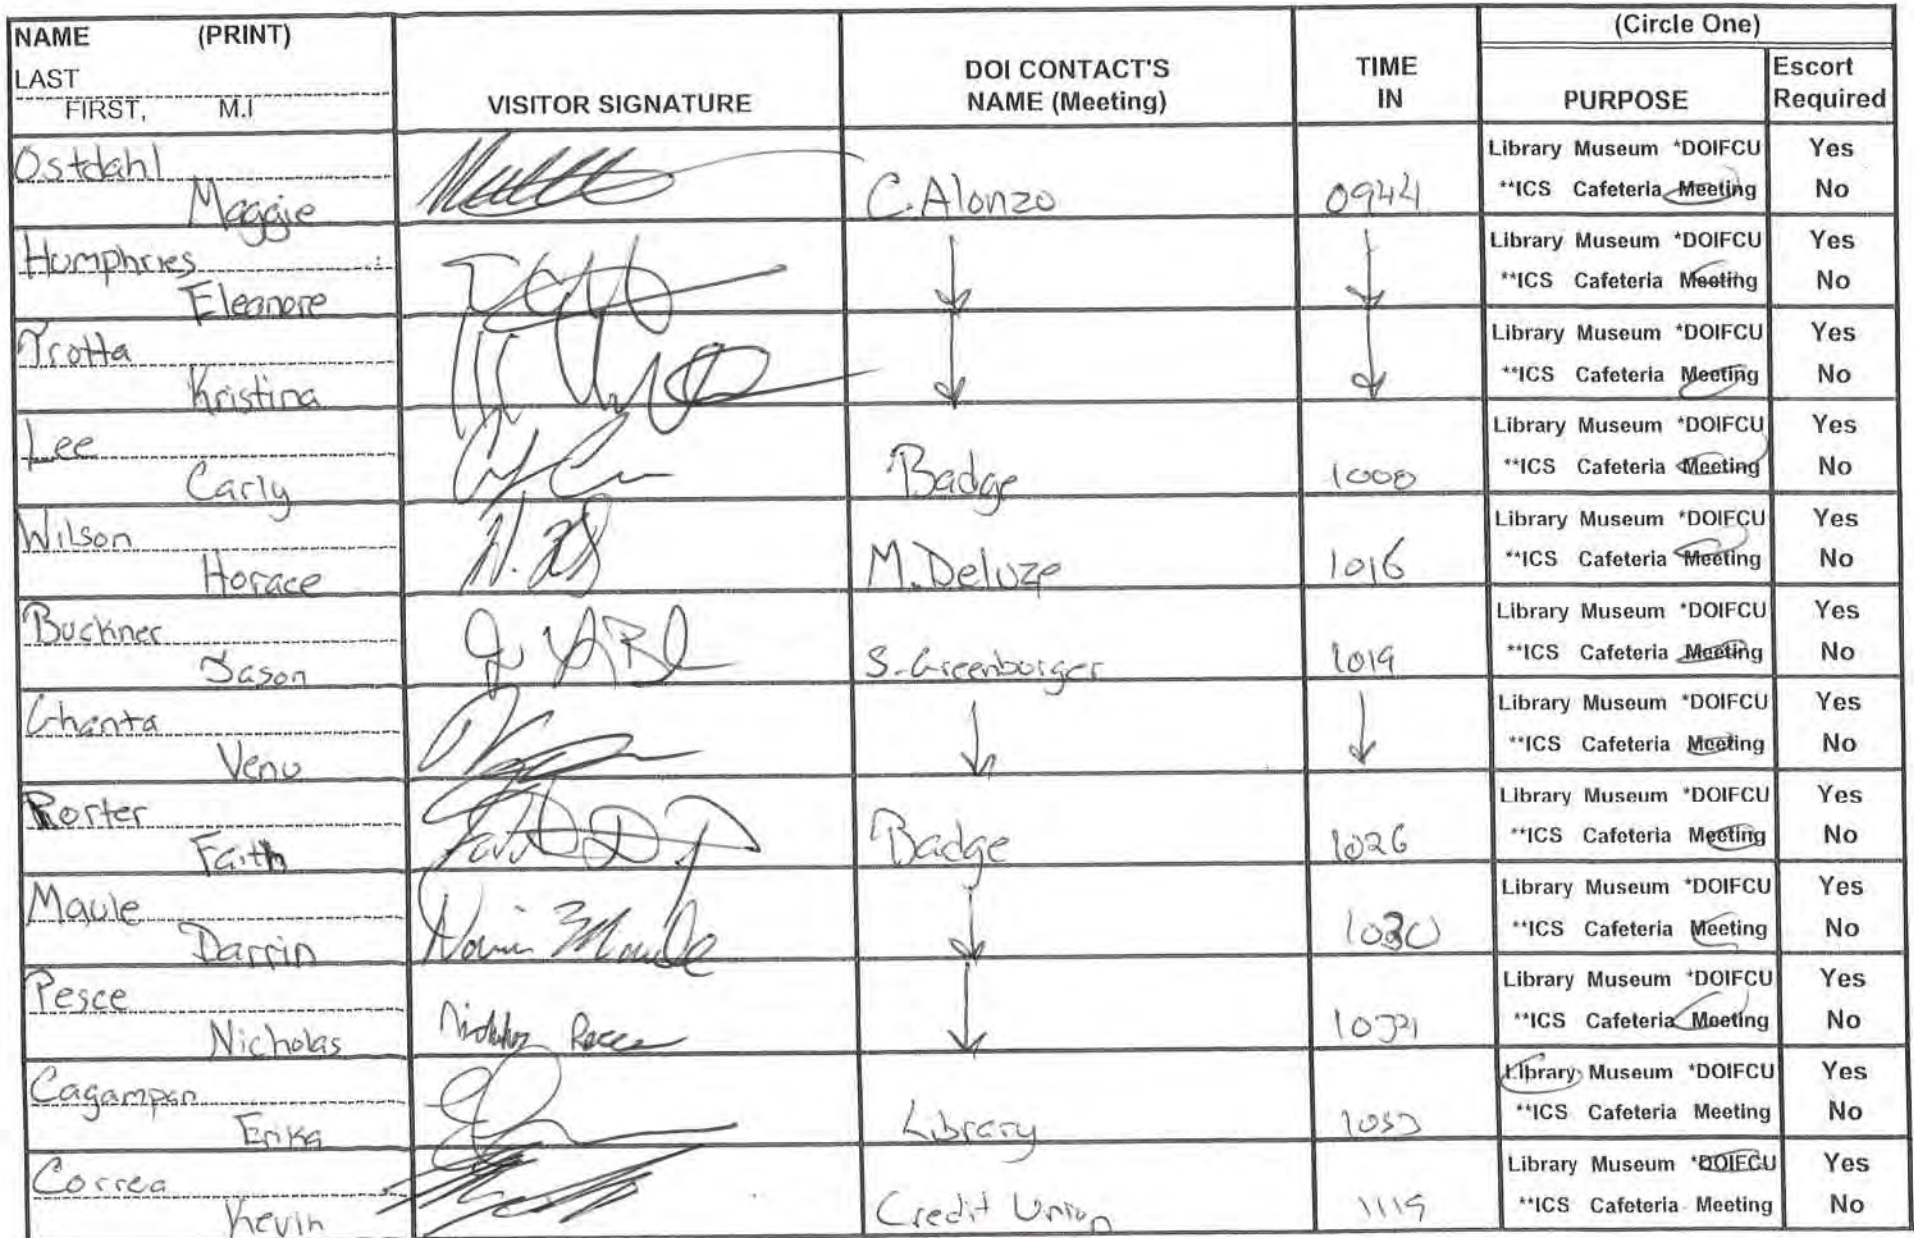 NAME (PRINT)
LAST
FIRST, M.I
VISITOR SIGNATURE
DOI CONTACT'S
NAME (Meeting)
TIME
IN
(Circle One)
PURPOSE
Escort
Required
Ostdahl
Maggie
C. Alonzo
0944
Library Museum *DOIFCU Yes
**ICS Cafeteria Meeting No
Humphries
Eleanore
Library Museum *DOIFCU Yes
**ICS Cafeteria Meeting No
Trotta
Kristina
Library Museum *DOIFCU Yes
**ICS Cafeteria Meeting No
Lee
Carly
Badge
1000
Library Museum *DOIFCU Yes
**ICS Cafeteria Meeting No
Wilson
Horace
M. Deluze
1016
Library Museum *DOIFCU Yes
**ICS Cafeteria Meeting No
Buckner
Jason
S. Greenberger
1019
Library Museum *DOIFCU Yes
**ICS Cafeteria Meeting No
Chanta
Venu
Library Museum *DOIFCU Yes
**ICS Cafeteria Meeting No
Porter
Faith
Badge
1026
Library Museum *DOIFCU Yes
**ICS Cafeteria Meeting No
Maule
Darrin
1030
Library Museum *DOIFCU Yes
**ICS Cafeteria Meeting No
Pesce
Nicholas
Library Museum *DOIFCU Yes
**ICS Cafeteria Meeting No
Cagampan
Erika
Library
Library Museum *DOIFCU Yes
**ICS Cafeteria Meeting No
Correa
Kevin
Credit Union
1119
Library Museum *DOIFCU Yes
**ICS Cafeteria Meeting No